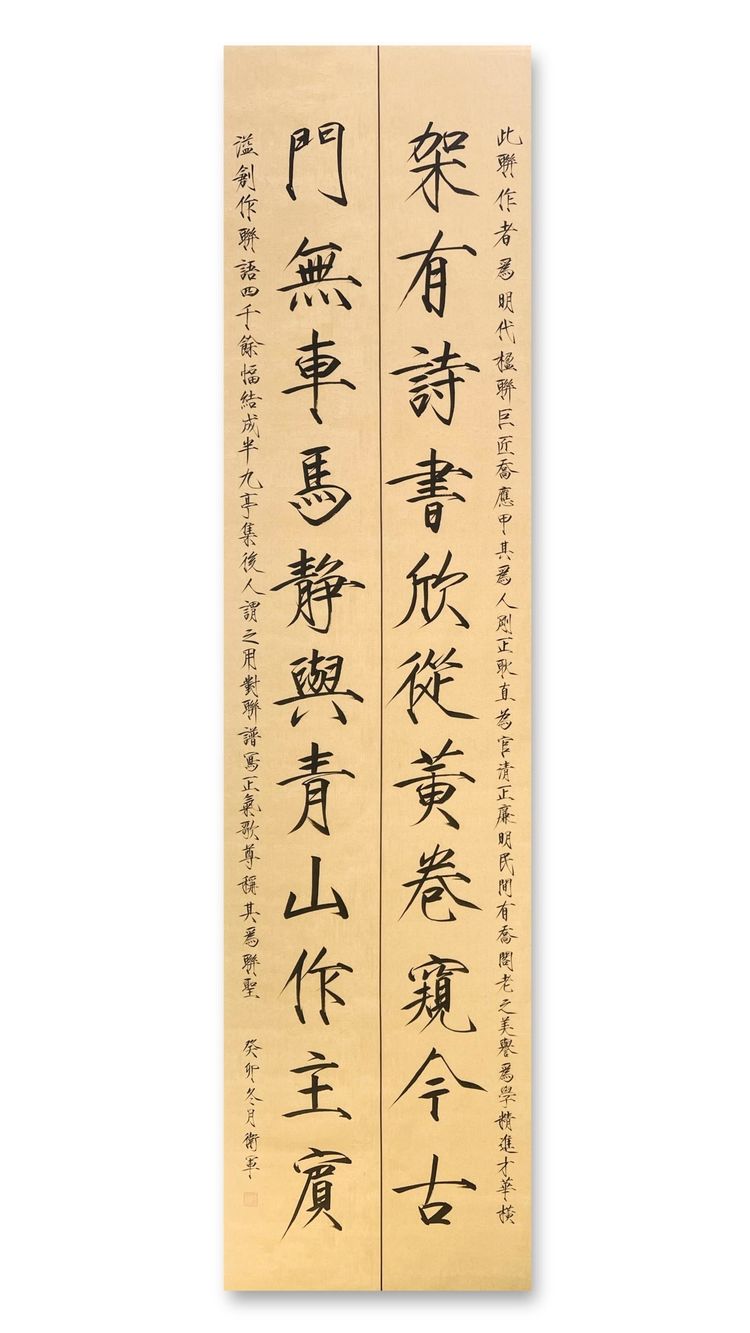 此聯作者爲明代楹聯巨匠喬應甲其爲人剛正耿直為官清正廉明民間有喬閣老之美譽爲學精進才華橫
架有詩書欣從黃卷窺今古
門無車馬静與青山作主賓
溢創作聯語四千餘幅結成半九亭集後人謂之用對聯譜寫正氣歌尊稱其爲聯聖
癸卯冬月衛軍